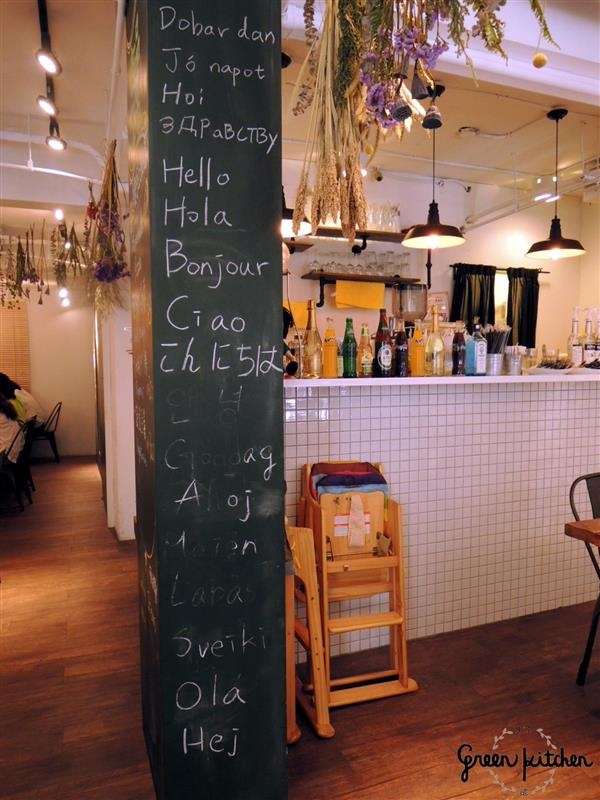 Dobar dan
Jó napot
Hoi
ЗДРАВСТВУ
Hello
Hola
Bonjour
Ciao
こんにちは
안녕
Goddag
Ahoj
Moien
Labas
Sveiki
Olá
Hej
Green kitchen